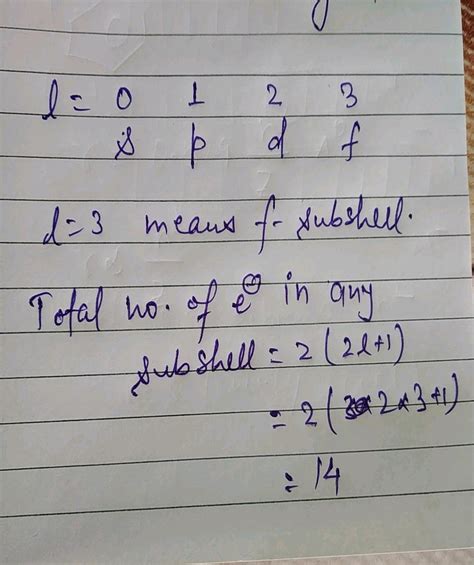 l = 0 1 2 3
s p d f
l=3 means f- subshell.
Total no. of e⊖ in any
subshell = 2(2l+1)
= 2(2×3+1)
= 14